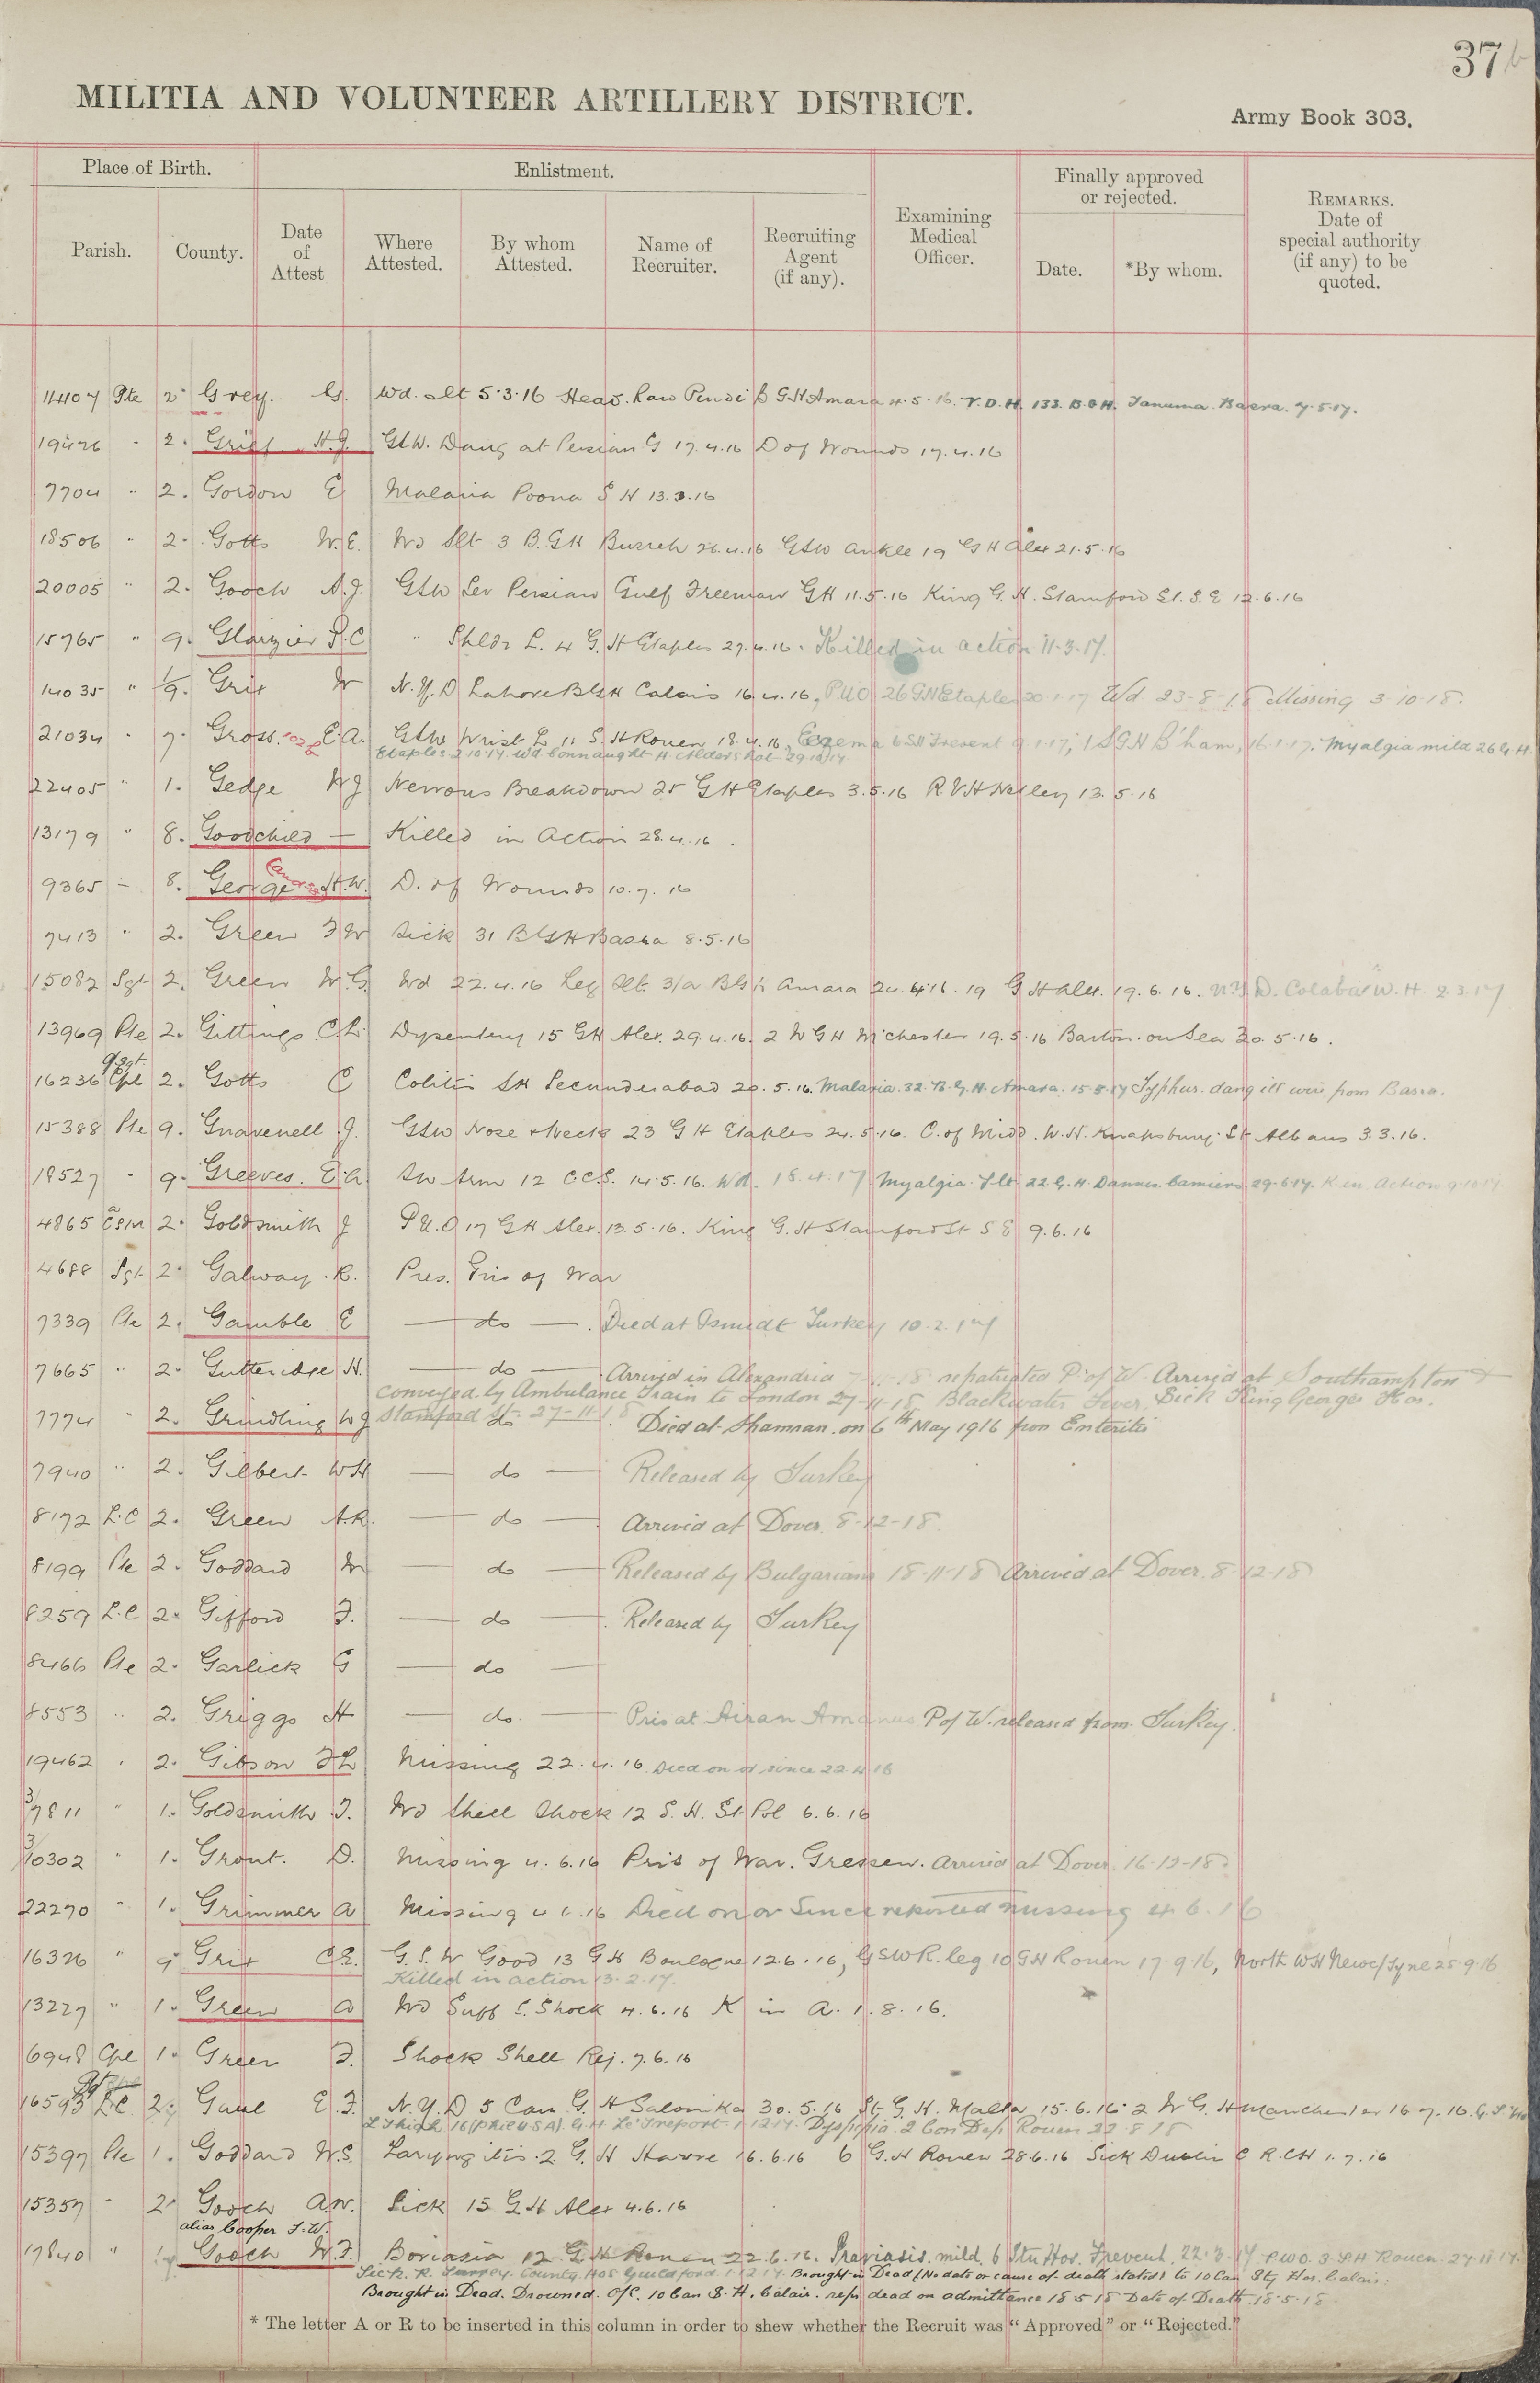 37b
MILITIA AND VOLUNTEER ARTILLERY DISTRICT.
Army Book 303.
Place of Birth.
Enlistment.
Finally approved
or rejected.
Parish.
County.
Date
of
Attest
Where
Attested.
By whom
Attested.
Name of
Recruiter.
Recruiting
Agent
(if any).
Examining
Medical
Officer.
Date.
*By whom.
REMARKS.
Date of
special authority
(if any) to be
quoted.
14407 Pte 2. Grey. G. Wd. slt 5.3.16 Head. Raw Pindi B G.H Amara 4.5.16. V.D.H. 133. B.G.H. Tanuma. Basra. 7.5.17.
19426 " 2. H.J. GSW. Dang at Persian G 17.4.16 D of Wounds 17.4.16
7704 " 2. Gordon E Malaria Poona S H 13.3.16
18506 " 2. Gotts W.E. Wd Slt 3 B.G.H Busreh 26.4.16 GSW Ankle 19 G H Alex 21.5.16
20005 " 2. Gooch A.J. GSW Sev Persian Gulf Freeman GH 11.5.16 King G. H. Stamford St. S.E 12.6.16
15765 " 9. Glazier P.C " Shldr L. 4 G. H Etaples 27.4.16. Killed in action 11.3.17.
14035 " 1/9. Grix W N.Y.D Lahore B G H Calais 16.4.16, P.U.O 26 G.H Etaples 20.1.17 Wd 23-8-18 Missing 3-10-18.
21034 " 7. Gross. E.A. GSW Wrist L 11 S. H Rouen 18.4.16. Eczema 6 S.H Frevent 9.1.17, 1 S G H B'ham, 16.1.17. Myalgia mild 26 G.H.
Etaples 2.10.17. Wd. Connaught H Aldershot 29.10.17
22405 " 1. Gedge W J Nervous Breakdown 25 G H Etaples 3.5.16 R.V.H Netley 13.5.16
13179 " 8. Goodchild — Killed in Action 28.4.16.
9365 - 8. George H.W. D. of Wounds 10.7.16
7413 " 2. Green F W Sick 31 B G H Basra 8.5.16
15082 Sgt 2. Green W.G. Wd 22.4.16 Leg Slt. 3/a B G H Amara 24.4.16. 19 G H Alex. 19.6.16. N.Y.D. Colaba W. H. 2.3.17
13969 Pte 2. Gittings C.L. Dysentery 15 G H Alex. 29.4.16. 2 W G H M'chester 19.5.16 Barton-on Sea 30.5.16.
16236 Cpl 2. Gotts. C Colitis S H Secunderabad 20.5.16. Malaria. 32. B. G. H. Amara. 15.5.17 Typhus. dang ill wire from Basra.
15388 Pte 9. Gravenell J. GSW Nose & Neck 23 G H Etaples 24.5.16. C. of Midd. W.H. Knapsbury St Albans 3.3.16.
18527 " 9. Greeves. E.A. SW Arm 12 C.C.S. 14.5.16. Wd. 18.4.17 Myalgia Slt 22 G.H. Dannes Camiers 29.6.17. K in Action 9.10.17
4865 CSM 2. Goldsmith J P.U.O 17 G H Alex. 13.5.16. King G. H Stamford St S E 9.6.16
4688 Sgt 2. Galway. R. Pres. Pris of War
7339 Pte 2. Gamble E — do — Died at Ismidt Turkey 10.2.17
7665 " 2. Gutteridge H. — do — Arrived in Alexandria 7-11-18 repatriated P. of W. Arrived at Southampton &
conveyed by Ambulance Train to London 27-11-18 Blackwater Fever, Sick King George Hos.
Stamford St. 27-11-18
7774 " 2. Grindling W J do. Died at Shamran. on 6th May 1916 from Enteritis
7940 " 2. Gilbert W H — do — Released by Turkey
8172 L.C 2. Green A.R. — do — Arrived at Dover. 8-12-18.
8199 Pte 2. Goddard W — do — Released by Bulgarians 18-11-18 Arrived at Dover. 8-12-18
8259 L.C 2. Gifford F. — do — Released by Turkey
8466 Pte 2. Garlick G — do —
8553 " 2. Griggs H — do. — Pris at Airan Amanus P of W. released from Turkey.
19462 " 2. Gibson F L Missing 22.4.16. Died on or since 22.4.16
3/7811 " 1. Goldsmith F. Wd Shell Shock 12 S. H. St Pol 6.6.16
3/10302 " 1. Grout. D. Missing 4.6.16 Pris of War. Gressen. Arrived at Dover 16-12-18.
22270 " 1. Grimmer A Missing 4.6.16 Died on or Since reported missing 4.6.16
16326 " 9 Grix C.E. G.S.W Good 13 G H Boulogne 12.6.16, GSW R. leg 10 G H Rouen 17.9.16, North W H Newc/Tyne 25.9.16
Killed in action 13.2.17.
13227 " 1. Green A Wd Suff S. Shock 4.6.16 K in A. 1.8.16.
6948 Cpl 1. Green F. Shock Shell Rej. 7.6.16
16593 L.C 2. Gaul E.F. N.Y.D 5 Can G. H Salonika 30.5.16 St G. H. Malta 15.6.16. 2 W G. H Manchester 16.7.16. G.S.W
L Thigh 16 (Phil U S A) G.H Le Treport 1.12.17. Dyspepsia 2 Con Dep Rouen 22.8.18
15397 Pte 1. Goddard W.S. Laryngitis. 2 G. H Havre 16.6.16 6 G.H Rouen 28.6.16 Sick Dublin C R.C H 1.7.16
15357 " 2 Gooch A.W. Sick 15 G H Alex 4.6.16
alias Cooper F.W.
17840 " Gooch W.F. 12 G H Rouen 22.6.16. mild. 6 Stn Hos. Frevent. 22.3.17 P.U.O. 3. S H Rouen. 27.11.17.
Sick. R. Surrey. County. Hos Guildford. 1.12.17. Brought in Dead (No date or cause of death stated) to 10 Can Sty Hos. Calais.
Brought in Dead. Drowned. O/C. 10 Can S. H. Calais. reps dead on admittance 18.5.18 Date of Death 18.5.18
* The letter A or R to be inserted in this column in order to shew whether the Recruit was "Approved" or "Rejected."